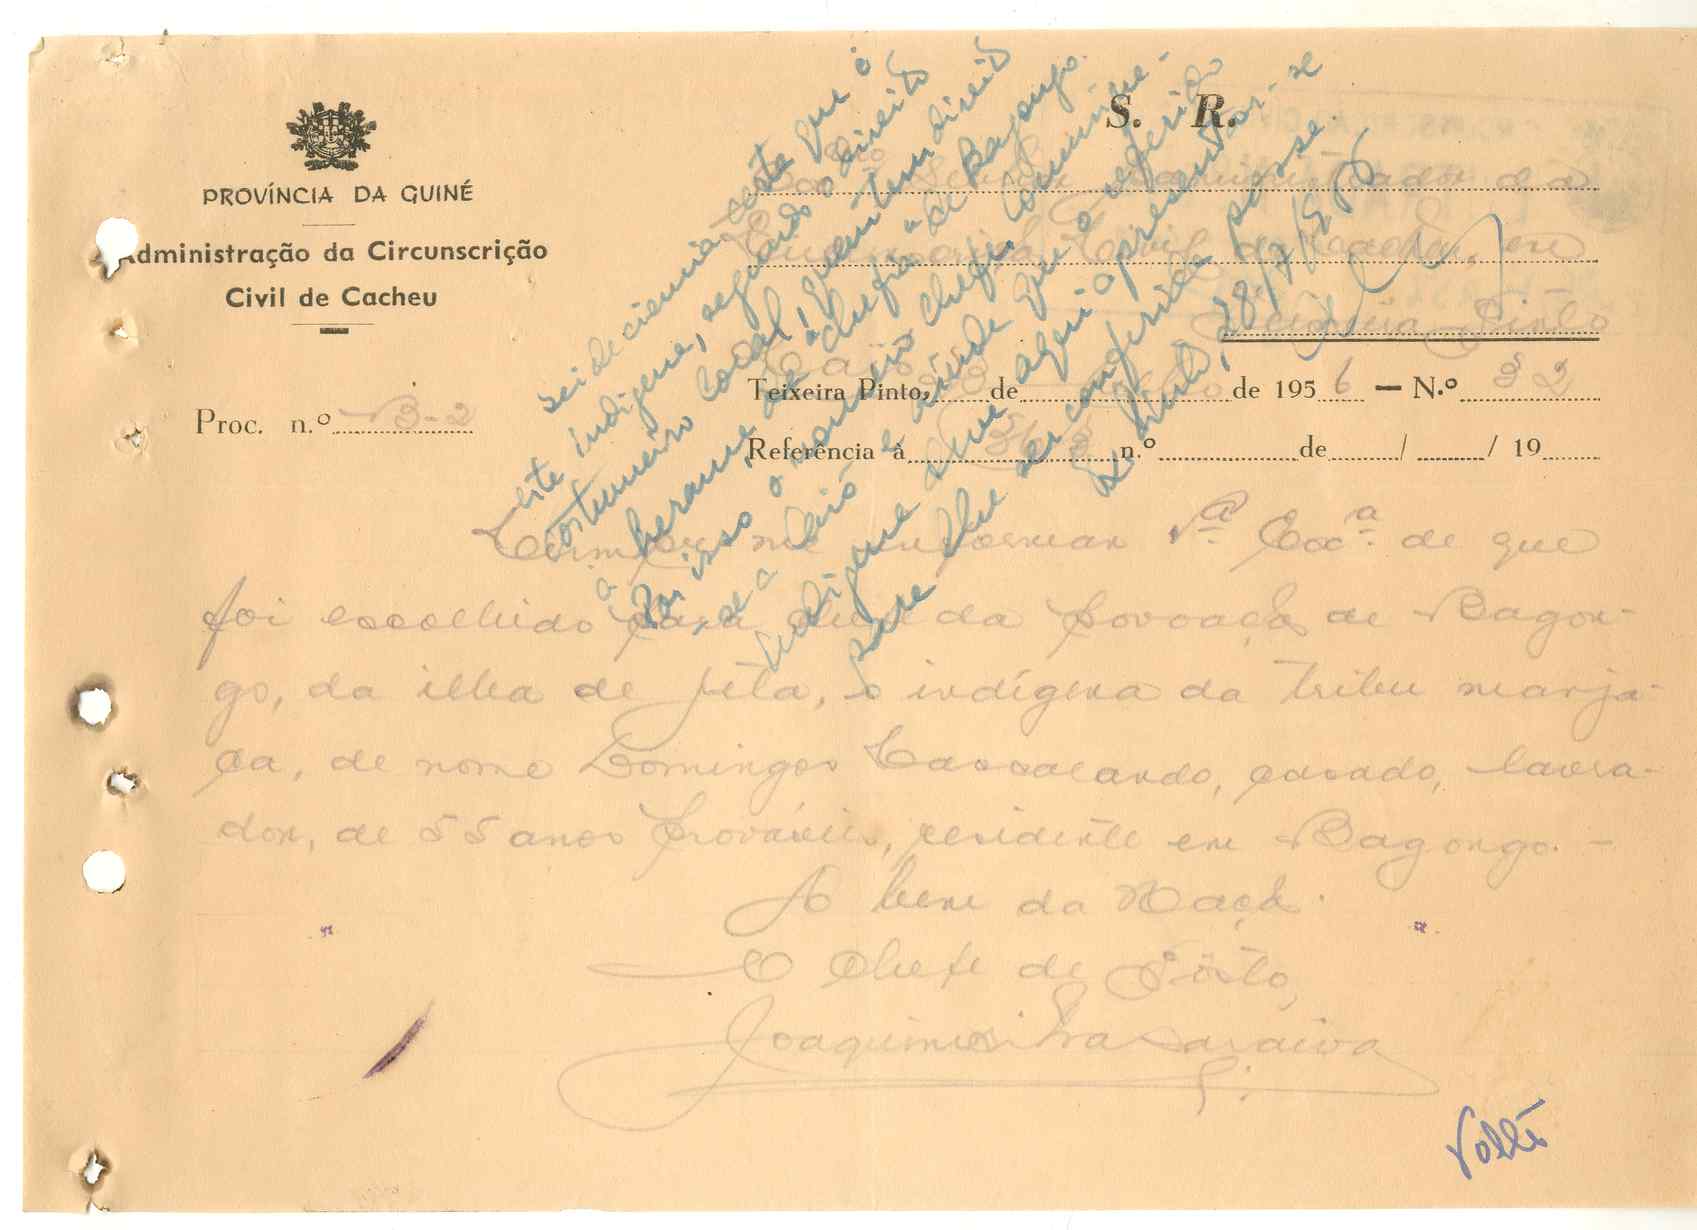 PROVÍNCIA DA GUINÉ
Administração da Circunscrição
Civil de Cacheu
Proc. n.º B-2
S. R.
Senhor Administrador da
Civil de Cacheu, em
Teixeira Pinto
Caió
Teixeira Pinto, de de 1956 — N.º 32
Referência à n.º de / / 19
Cumpre-me informar V.ª Excª. de que
foi escolhido para chefe da Povoação de Bagon-
go, da ilha de Jeta, o indígena da tribu manja-
ca, de nome Domingos, casado, lavra-
dor, de 55 anos prováveis, residente em Bagongo. -
A bem da Nação.
O Chefe de Pôsto,
Joaquim Silva Saraiva
este indígena, segundo o direito
costumeiro local, quem tem direito
à herança da chefia de Bagongo.
Por isso o nomeio chefe. Comunique-
se a Caió e avise de que o referido
indígena deve aqui apresentar-se
para lhe ser conferida posse
T. Pinto, 28/7/956
Volte